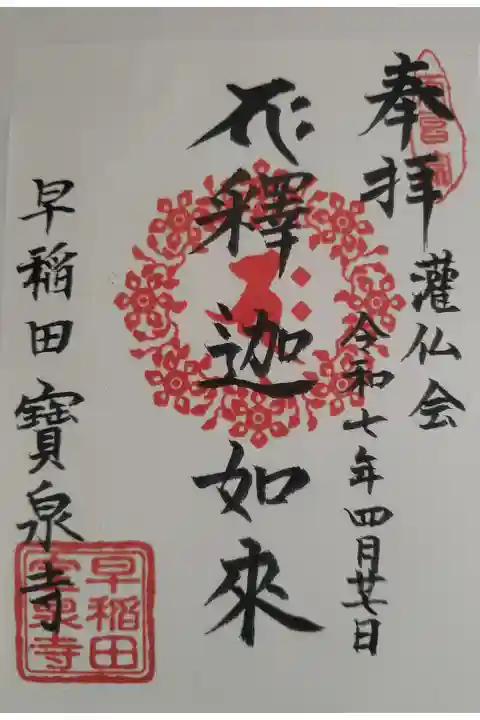 奉拝
灌仏会
令和七年四月廿七日
釋迦如來
早稲田寶泉寺
早稲田